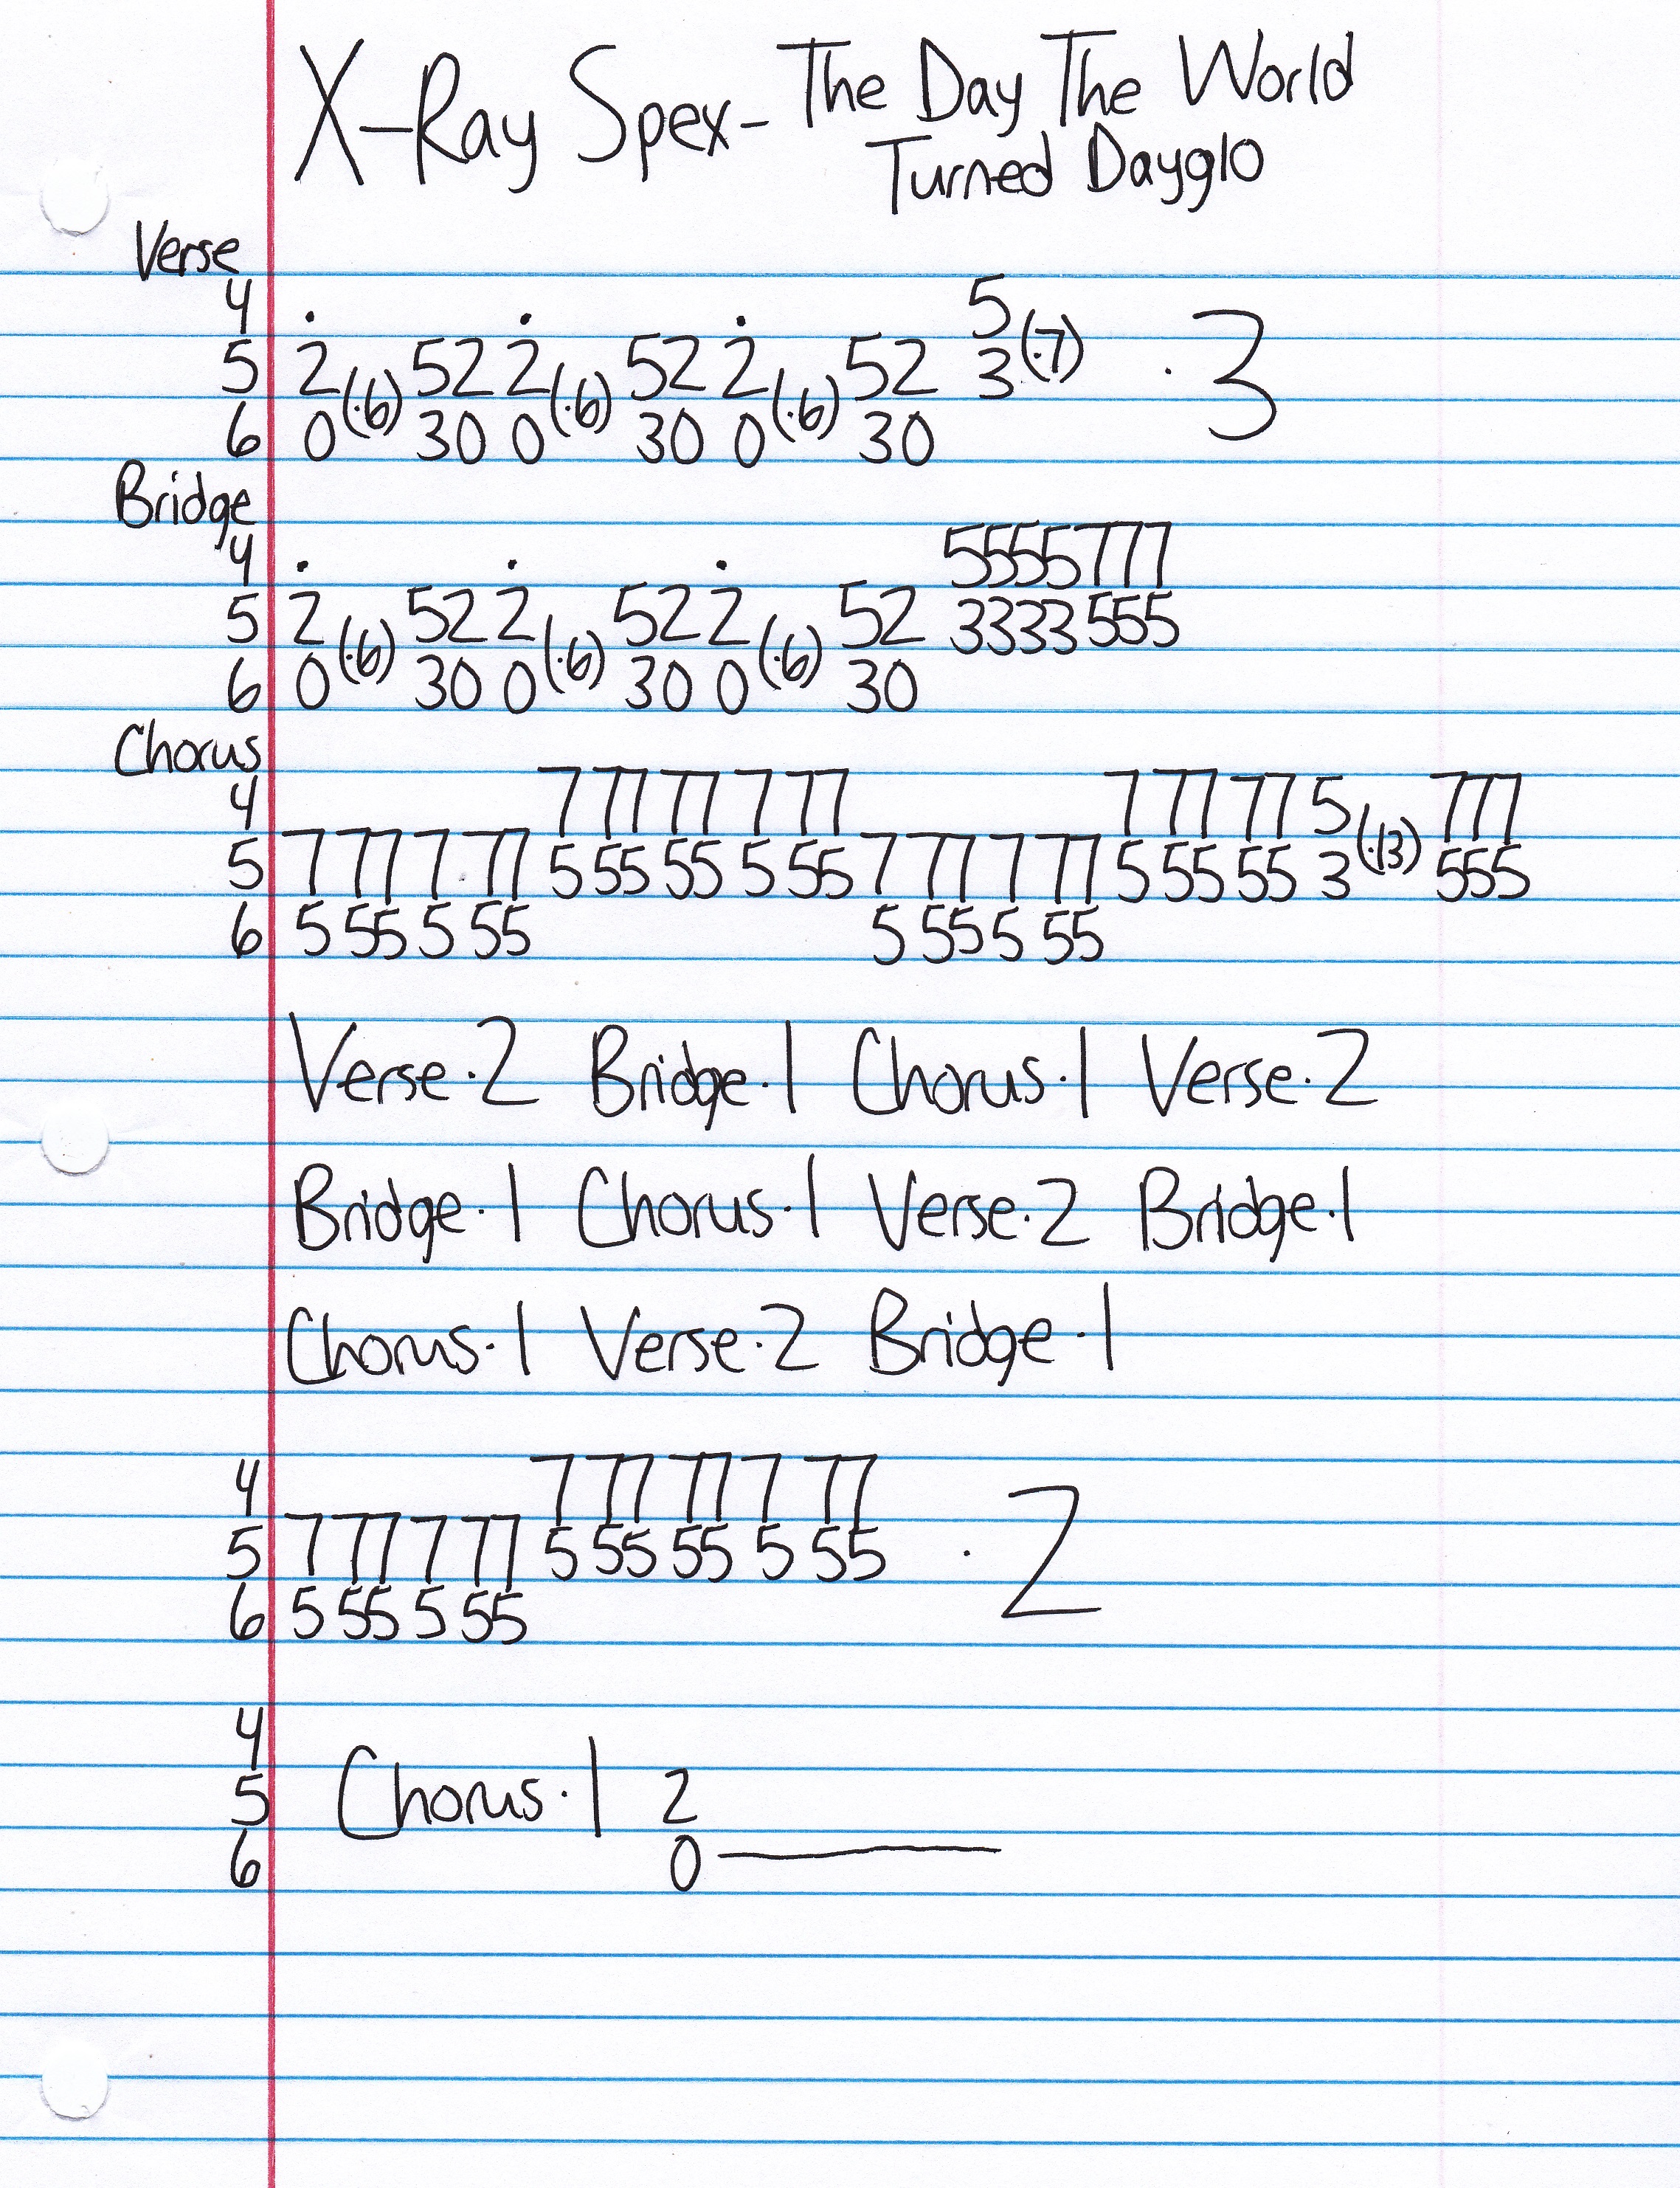 X-Ray Spex- The Day The World
Turned Dayglo
Verse
4 . . . 5
5 2 (·6) 52 2 (·6) 52 2 (·6) 52 3 (·7) · 3
6 0 30 0 30 0 30
Bridge
4 . . . 5555777
5 2 (·6) 52 2 (·6) 52 2 (·6) 52 3333555
6 0 30 0 30 0 30
Chorus
4 7 77 77 7 77 7 77 77 5 (·13) 777
5 7 77 7 77 5 55 55 5 55 7 77 7 77 5 55 55 3 555
6 5 55 5 55 5 55 5 55
Verse·2 Bridge·1 Chorus·1 Verse·2
Bridge·1 Chorus·1 Verse·2 Bridge·1
Chorus·1 Verse·2 Bridge·1
4 7 77 77 7 77
5 7 77 7 77 5 55 55 5 55 · 2
6 5 55 5 55
4
5 Chorus·1 2
6 0